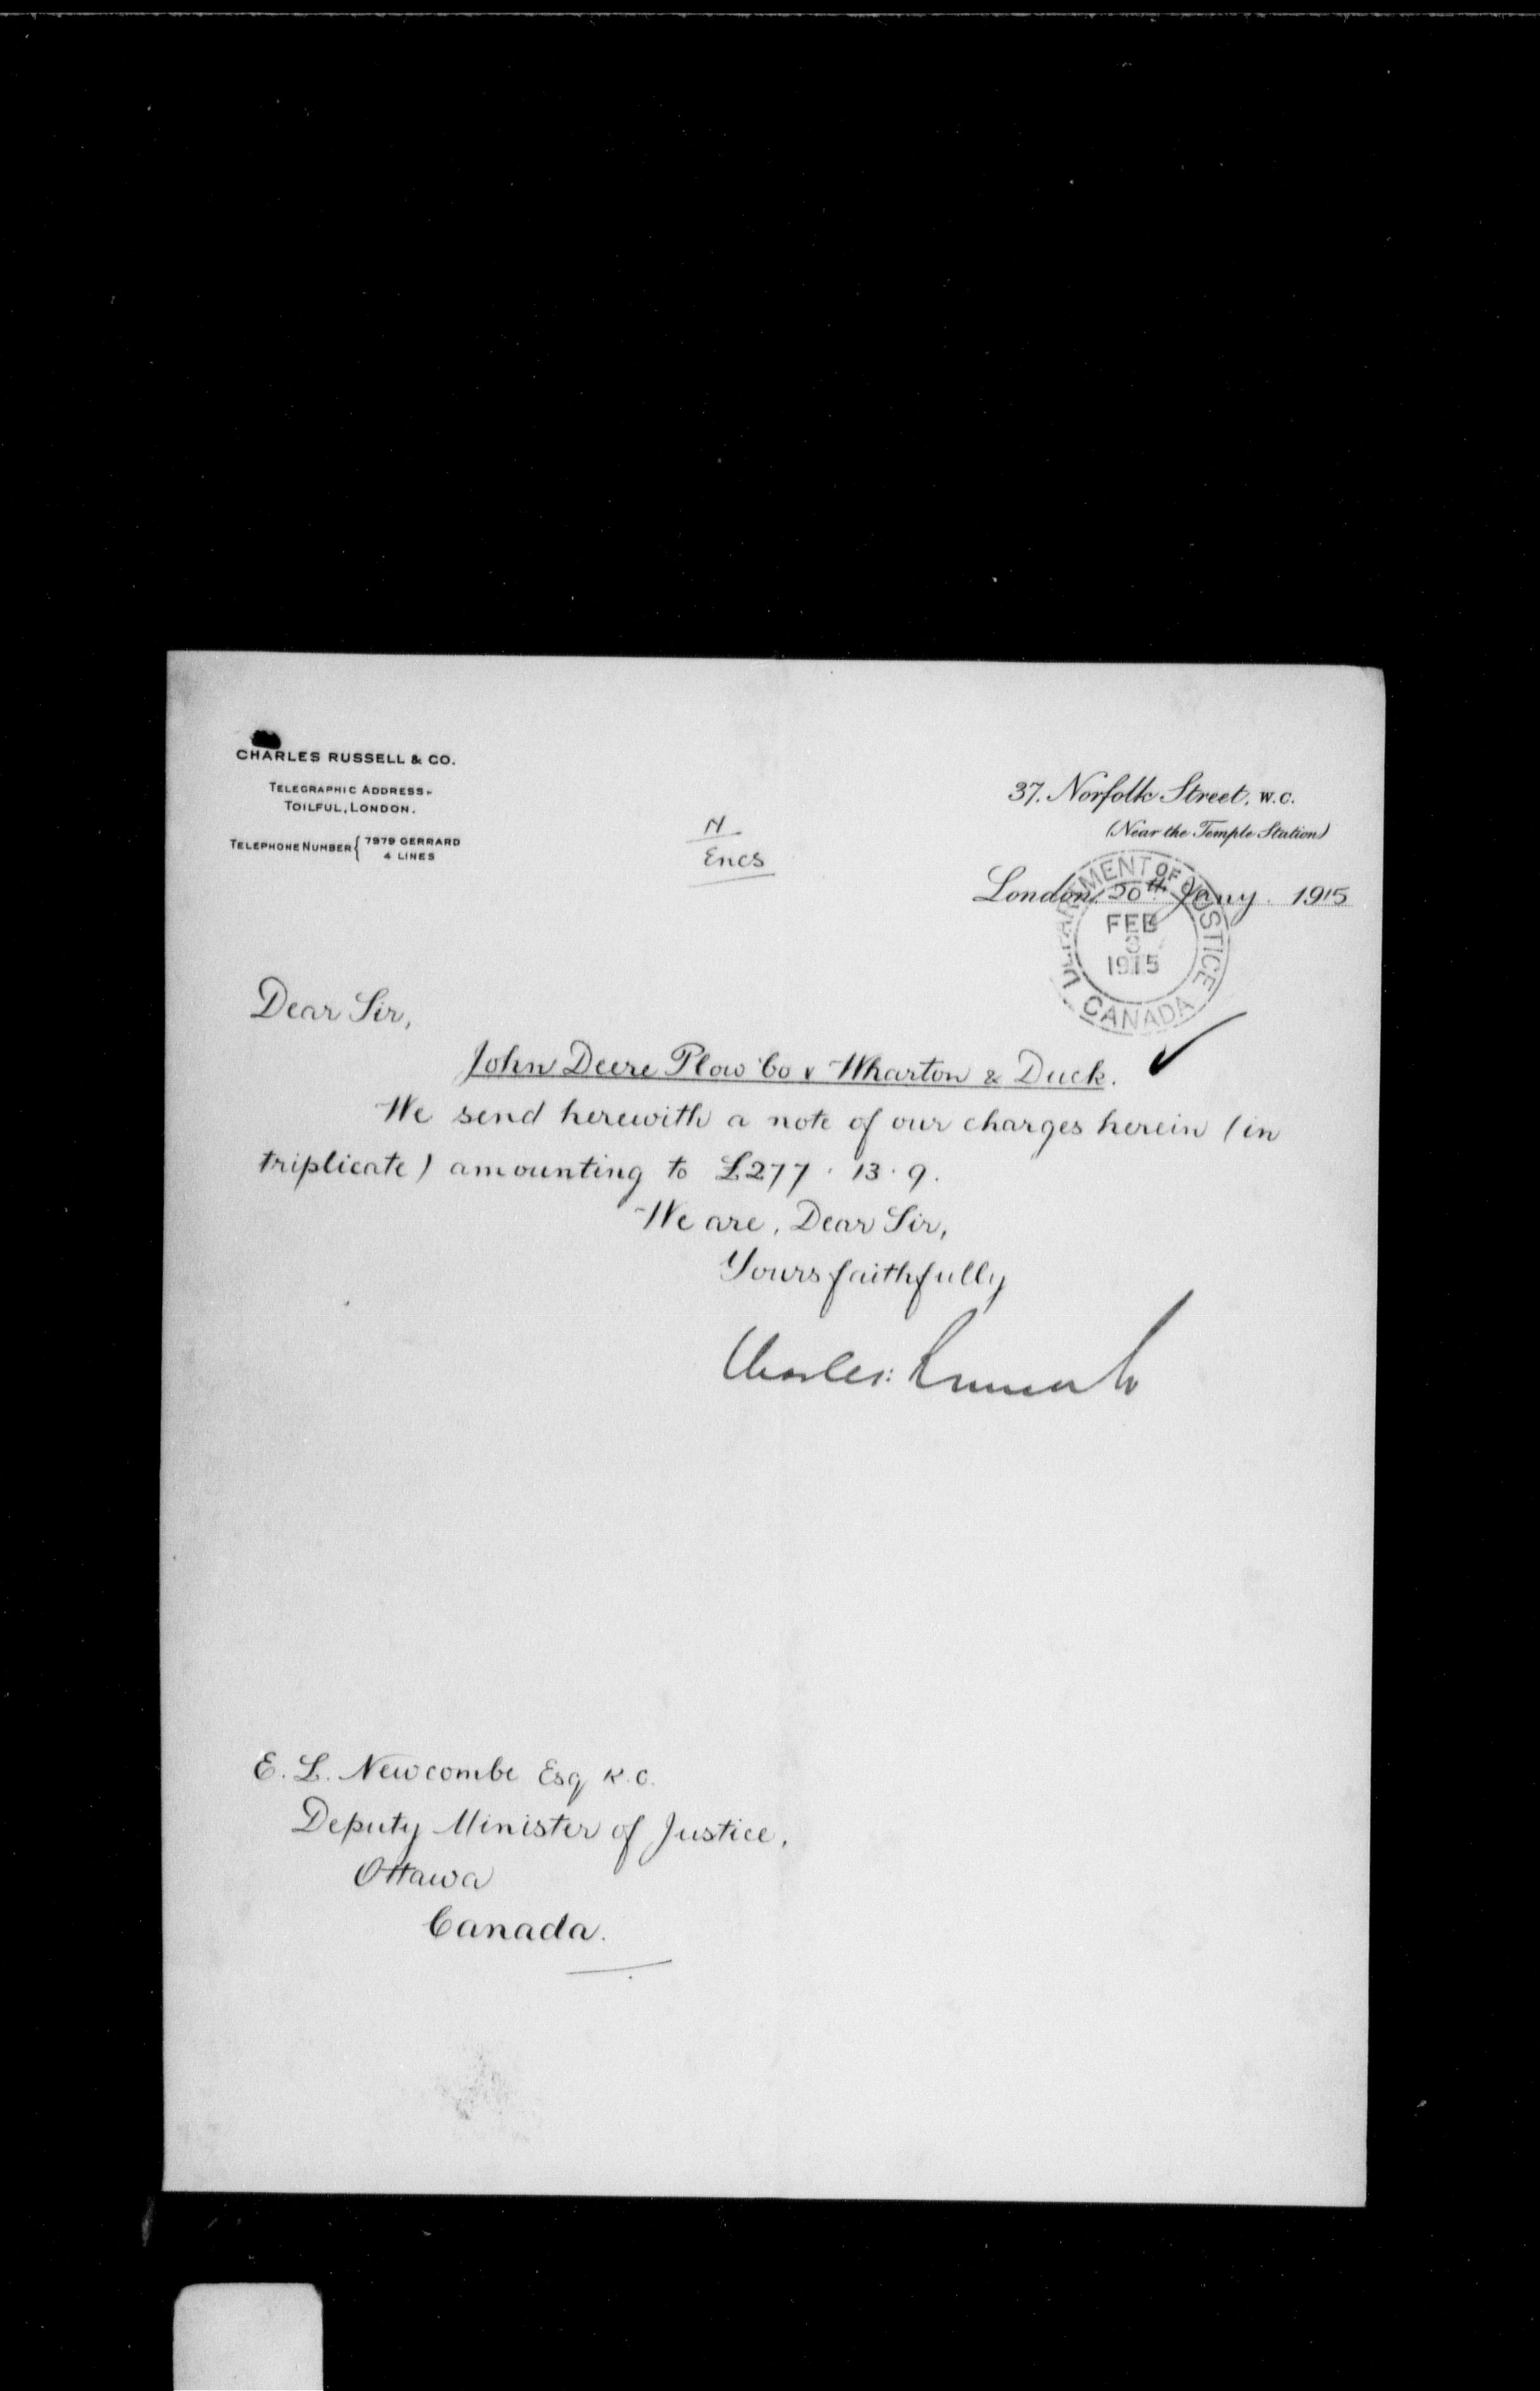 CHARLES RUSSELL & CO.
TELEGRAPHIC ADDRESS.
TOILFUL, LONDON.
TELEPHONE NUMBER { 7979 GERRARD
4 LINES
N
Encs
37. Norfolk Street, W.C.
(Near the Temple Station)
London, 20th Jany. 1915
DEPARTMENT OF JUSTICE
FEB
1915
CANADA
Dear Sir,
John Deere Plow Co v Wharton & Duck.
We send herewith a note of our charges herein (in
triplicate) amounting to £277 . 13 . 9.
We are, Dear Sir,
Yours faithfully
Charles Russell & Co
E. L. Newcombe Esq K.C.
Deputy Minister of Justice,
Ottawa
Canada.